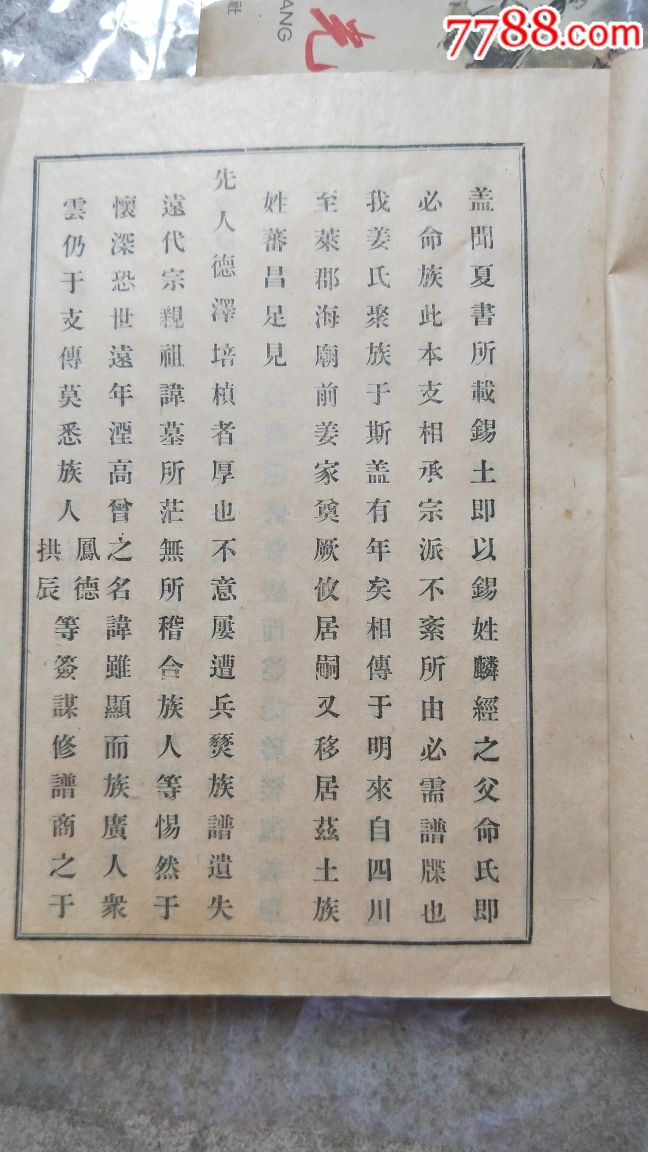 社
ANG
7788.com
盖聞夏書所載錫土即以錫姓麟經之父命氏即
必命族此本支相承宗派不紊所由必需譜牒也
我姜氏聚族于斯盖有年矣相傳于明來自四川
至萊郡海廟前姜家奠厥攸居嗣又移居茲土族
姓蕃昌足見
先人德澤培植者厚也不意屢遭兵燹族譜遺失
遠代宗親祖諱墓所茫無所稽合族人等惕然于
懷深恐世遠年湮高曾之名諱雖顯而族廣人衆
雲仍于支傳莫悉族人鳳德拱辰等簽謀修譜商之于